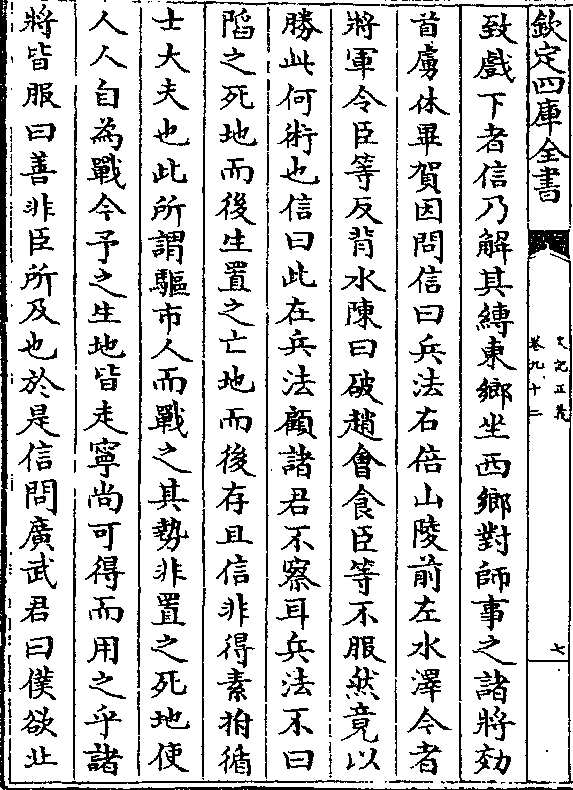 欽定四庫全書
史記正義
卷九十二
七
致戲下者信乃解其縛東鄉坐西鄉對師事之諸將効
首虜休畢賀因問信曰兵法右倍山陵前左水澤今者
將軍令臣等反背水陳曰破趙會食臣等不服然竟以
勝此何術也信曰此在兵法顧諸君不察耳兵法不曰
陷之死地而後生置之亡地而後存且信非得素拊循
士大夫也此所謂驅市人而戰之其勢非置之死地使
人人自為戰今予之生地皆走寧尚可得而用之乎諸
將皆服曰善非臣所及也於是信問廣武君曰僕欲北